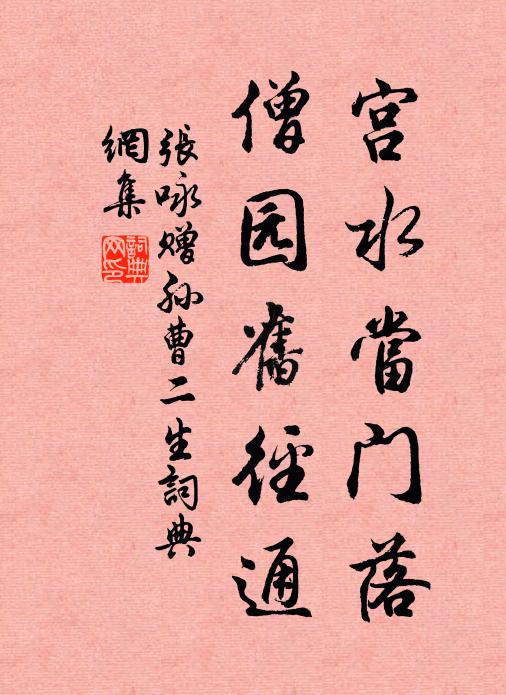 宫水當门落
僧园舊径通
張咏赠孙曹二生詞典
網集
詞典
网印